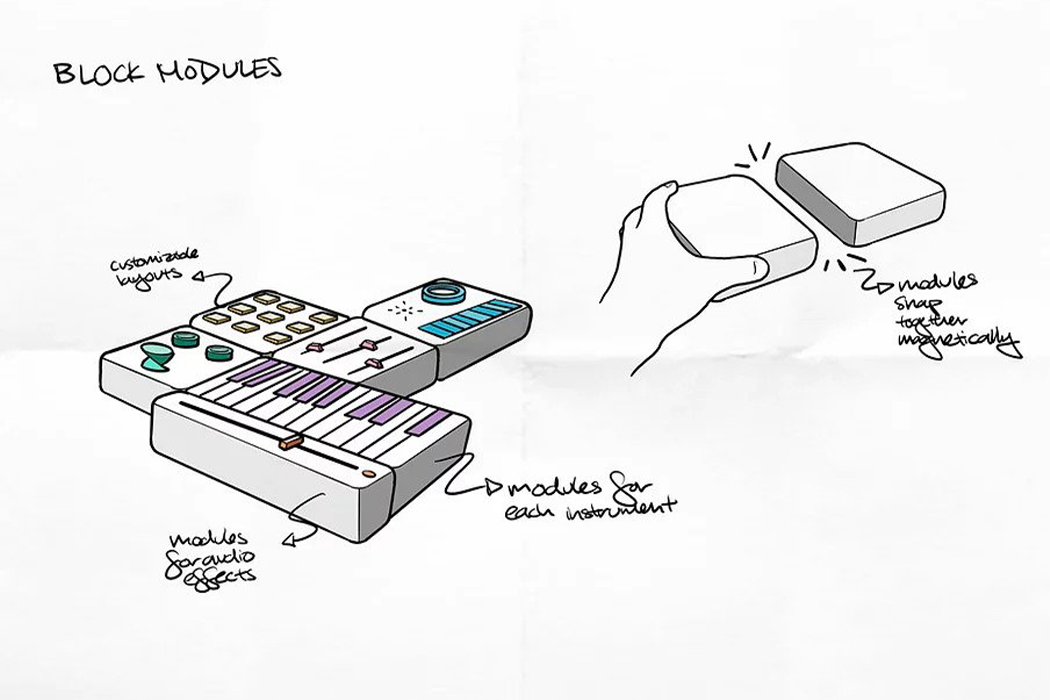 BLOCK MODULES
customizable
layouts
modules
snap
together
magnetically
modules for
each instrument
modules
for audio
effects